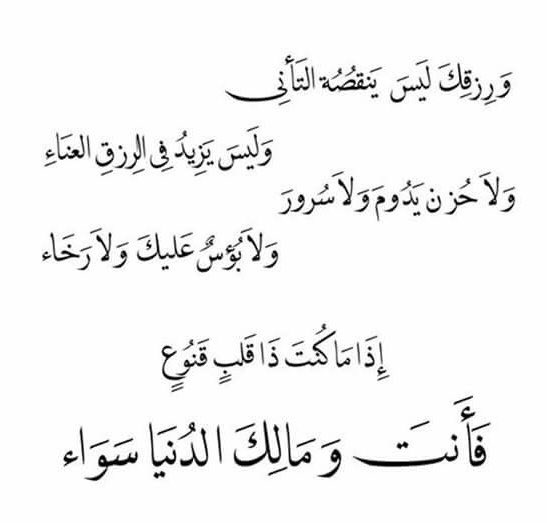 وَرِزقِكَ لَيسَ يَنقصُهُ التَأنِى
وَلَيسَ يَزِيدُ فِى الرِزقِ العنَاءِ
وَلاَ حُزن يَدُومَ وَلاَ سُرورَ
وَلاَ بُؤسٌ عَليكَ وَلاَ رَخَاء
إِذَا مَا كُنتَ ذَا قَلبٍ قَنُوعٍ
فَأَنتَ وَمَالِكَ الدُنيَا سَوَاء